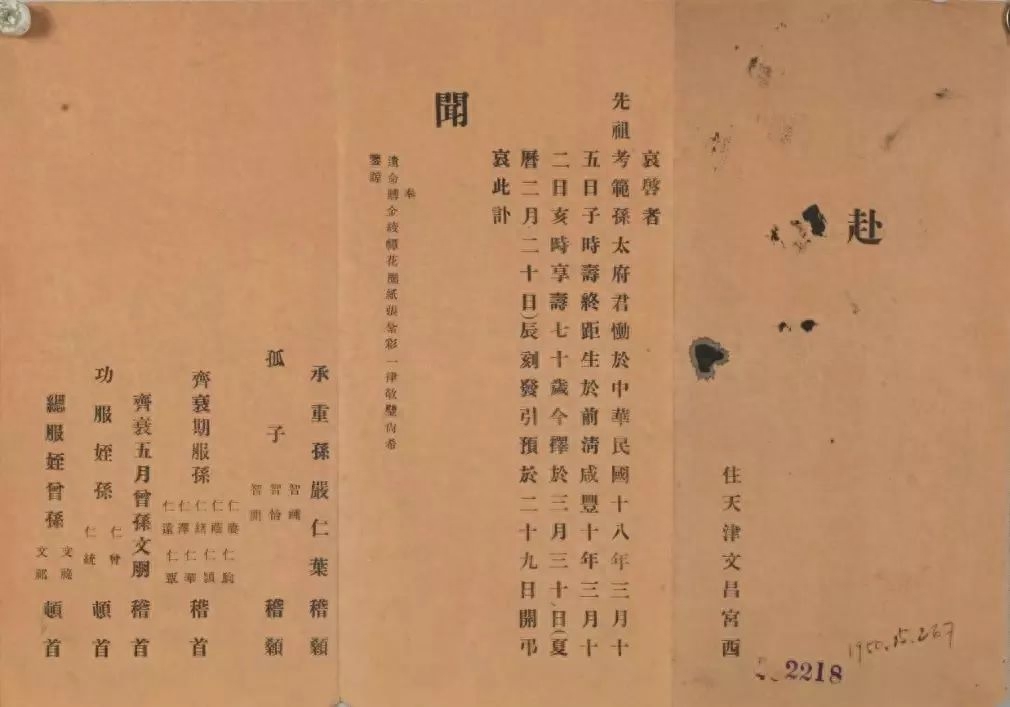 赴
住天津文昌宮西
2218
哀啓者
先祖考範孫太府君慟於中華民國十八年三月十
五日子時壽終距生於前淸咸豐十年三月十
二日亥時享壽七十歲今擇於三月三十日(夏
曆二月二十日)辰刻發引預於二十九日開弔
哀此訃
聞
奉
遺命賻金綾幛花圈紙張 彩一律敬璧尙希
鑒諒
承重孫嚴仁葉稽顙
孤子
智
智怡
智開
稽顙
齊衰期服孫
仁 仁
仁 仁
仁 仁
仁澤
仁遠 仁覃
稽首
齊衰五月曾孫文朋稽首
功服姪孫
仁曾
仁統
頓首
緦服姪曾孫
文
文
頓首